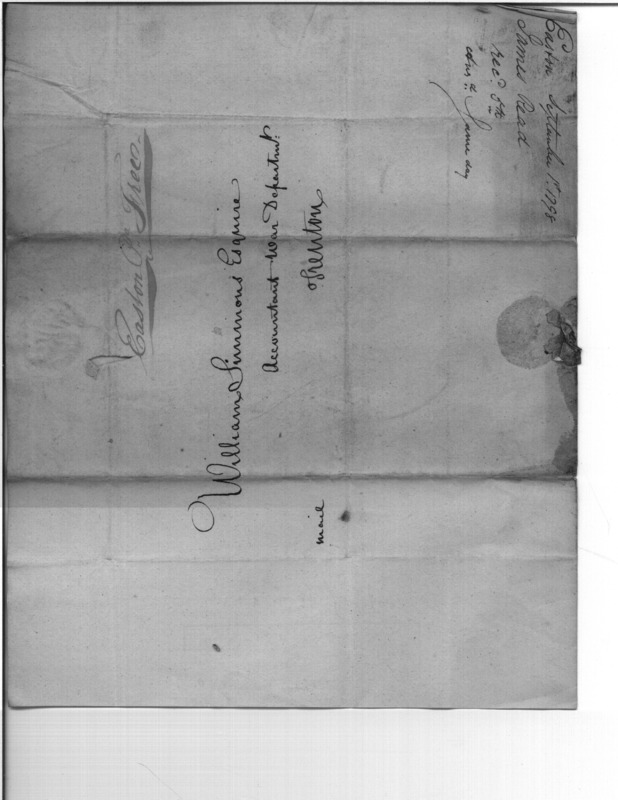 Easton Septembr 1st. 1798
James Read
Rec'd. 8th
Ans'd. Same day
Easton Pa Free
William Simmons Esquire
Accountant War Departmt.
Trenton
mail